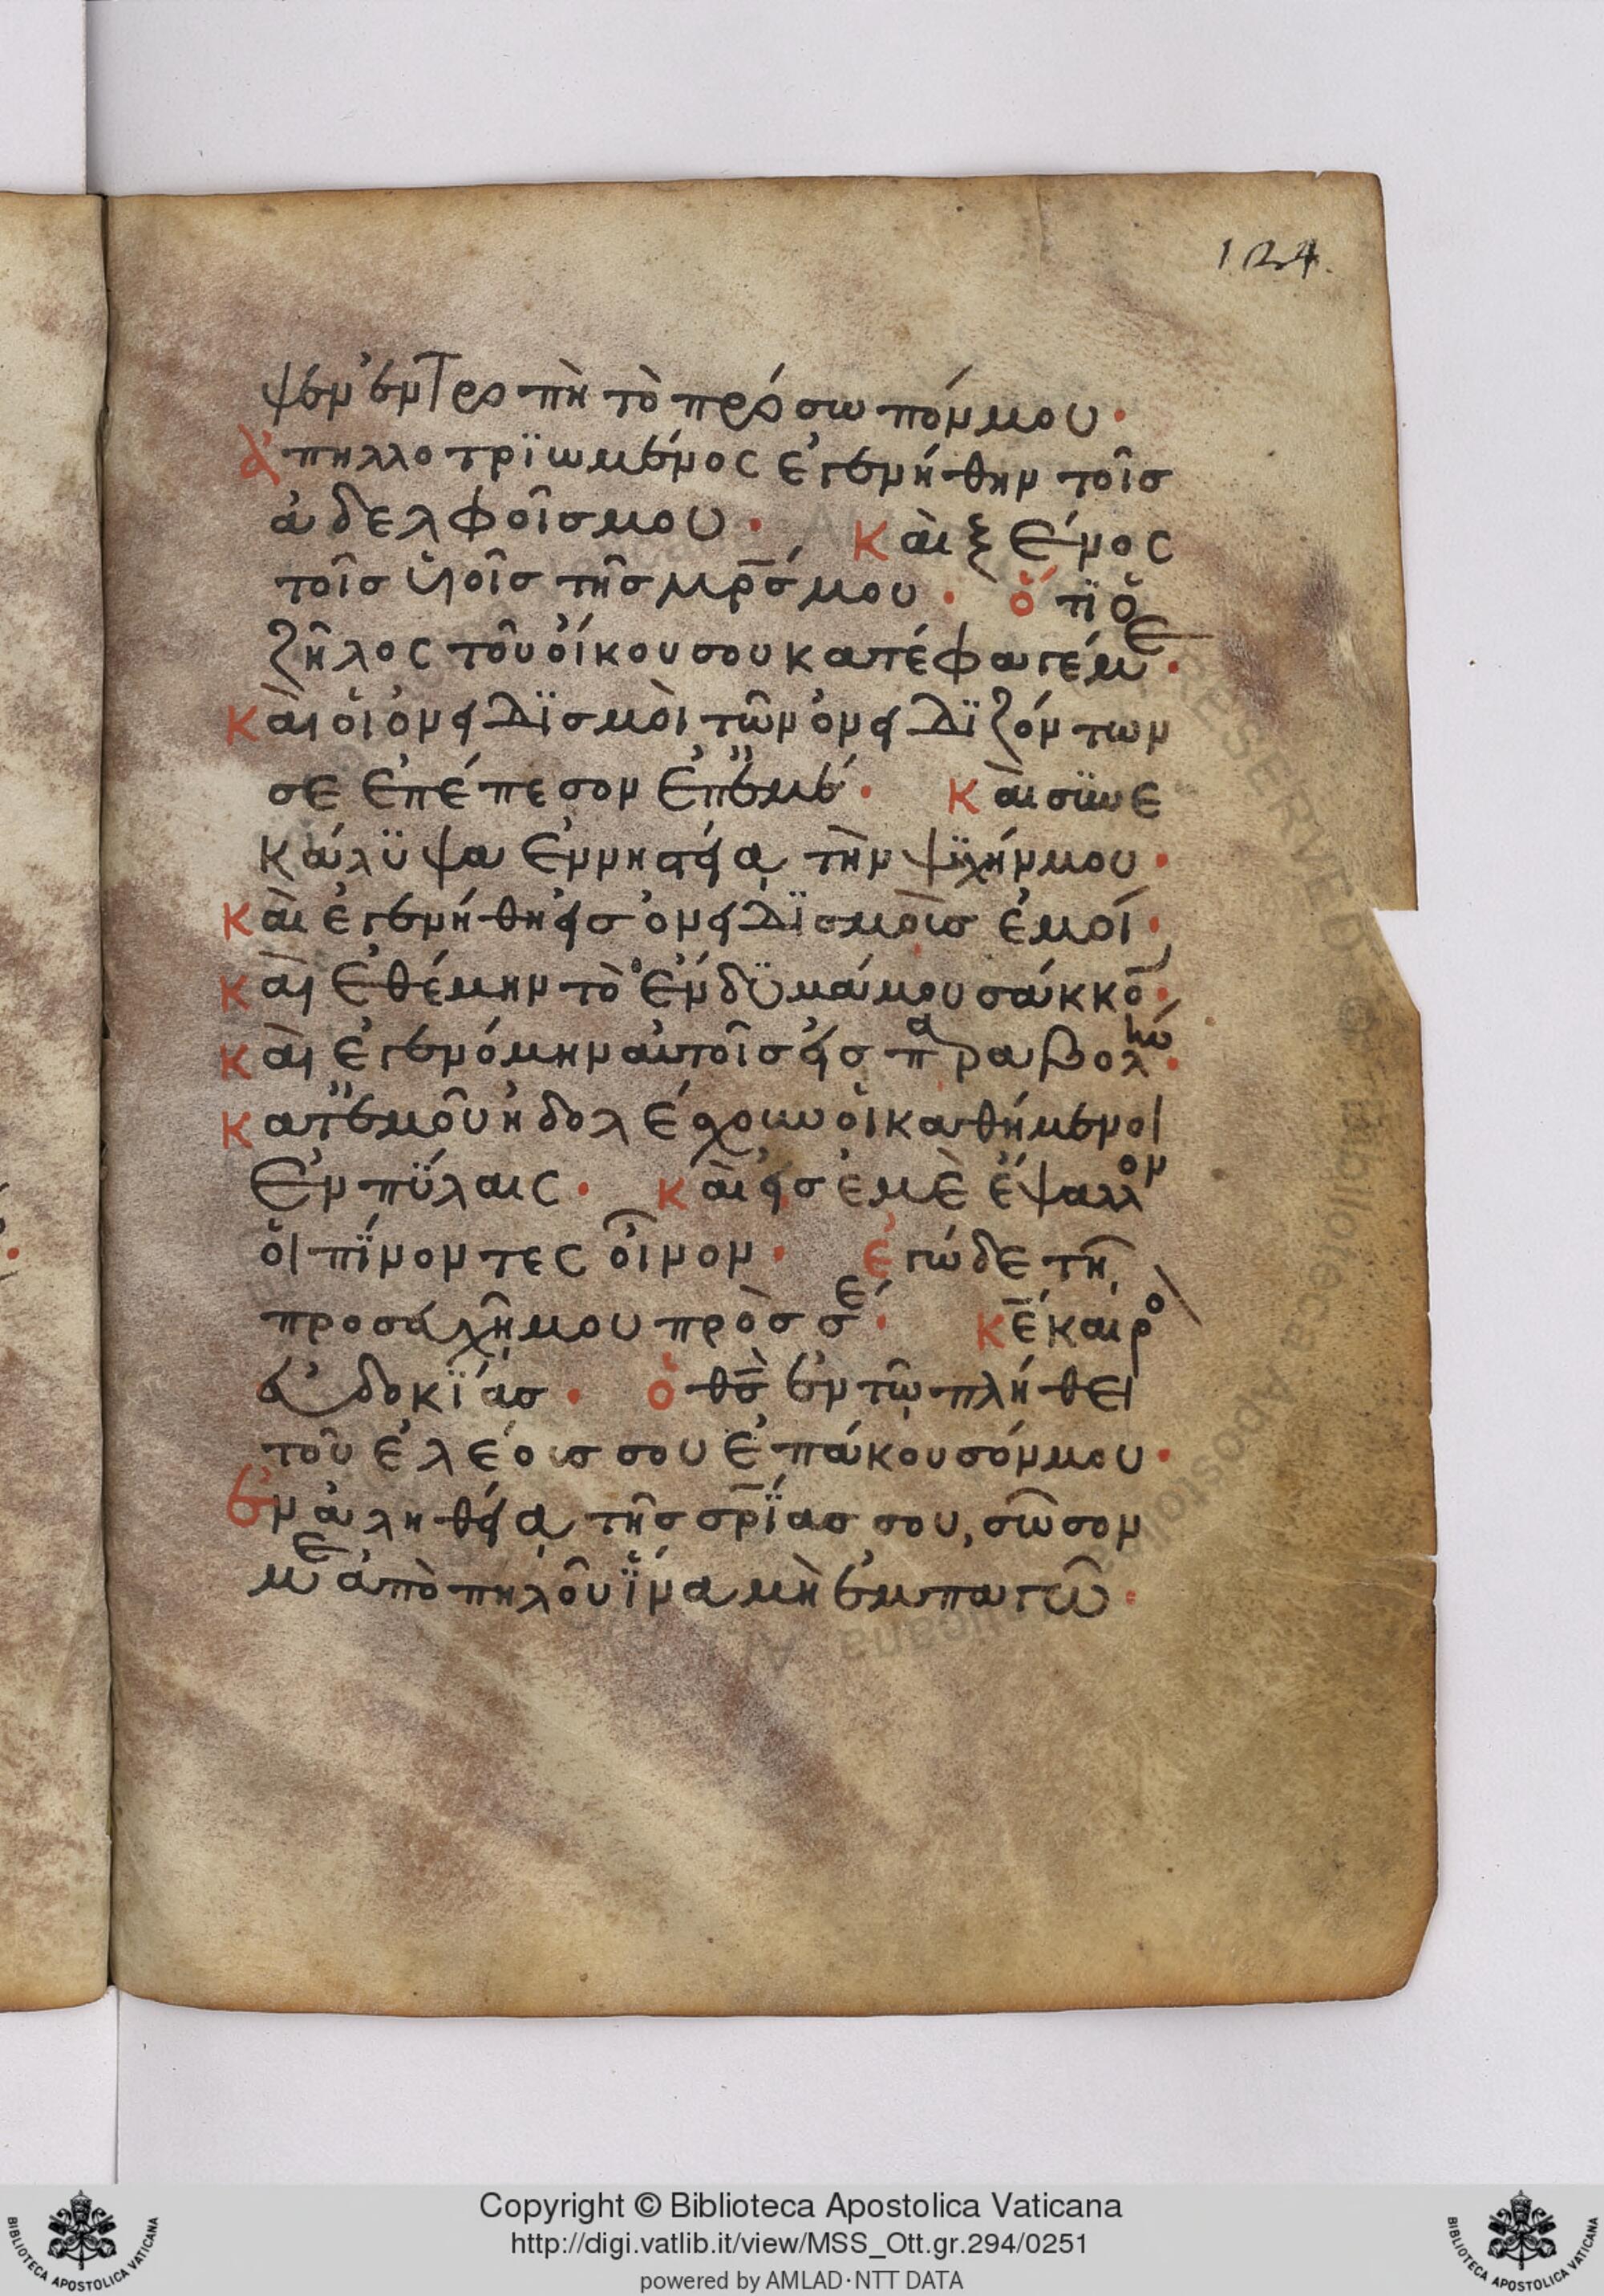 124.
ψεν ἐντροπὴ τὸ πρόσωπόν μου·
ἀπηλλοτρϊωμένος ἐγενήθην τοῖσ
ἀδελφοῖσ μου· Καὶ ξένος
τοῖσ ὑϊοῖσ τῆσ μρ̅σ μου· ὅτϊ ὁ
ζῆλος τοῦ οἴκου σου κατέφαγέ με·
Καὶ οἱ ὀνειδϊσμοὶ τῶν ὀνειδϊζόντων
σε ἐπέπεσον ἐπ' ἐμέ· Καὶ συνε
κάλϋψα ἐν νηστεία τὴν ψϋχήν μου·
Καὶ ἐγενήθη εἰσ ὀνειδϊσμοὺσ ἐμοί·
Καὶ ἐθέμην τὸ ἔνδϋμά μου σάκκο̅·
Καὶ ἐγενόμην αὐτοῖσ εἰσ παραβολήν·
Κατ' ἐμοῦ ἠδολέσχουν οἱ καθήμενοι
ἐν πΰλαις· Καὶ εἰσ ἐμὲ ἔψαλλον
οἱ πίνοντες οἶνον· ἐγὼ δε τῆ
προσευχῆ μου πρὸσ σέ· Κ̅ε̅ καιρὸ
εὐδοκΐασ· ὁ θ̅σ̅ ἐν τῶ πλήθει
τοῦ ἐλέουσ σου ἐπάκουσόν μου·
ἐν ἀληθεία τῆσ σρ̅ΐασ σου, σῶσον
με ἀπὸ πηλοῦ ἵνα μὴ ἐμπαγῶ·
Copyright © Biblioteca Apostolica Vaticana
http://digi.vatlib.it/view/MSS_Ott.gr.294/0251
powered by AMLAD·NTT DATA
BIBLIOTECA APOSTOLICA VATICANA
BIBLIOTECA APOSTOLICA VATICANA